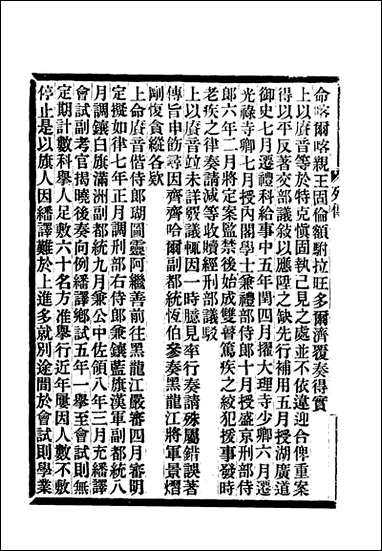 列傳
命喀爾喀親王固倫額駙拉旺多爾濟覆奏得實
上以賡音等於特克愼固執己見之處並不依違迎合俾重案
得以平反著交部議敘以應陞之缺先行補用五月授湖廣道
御史七月遷禮科給事中五年閏四月擢大理寺少卿六月遷
光祿寺卿七月授內閣學士兼禮部侍郎十月授盛京刑部侍
郎六年二月將定案監禁後始成雙瞽篤疾之絞犯援事發時
老疾之律奏請減等收贖經刑部議駁
上以賡音並未詳覈議輒因一時臆見率行奏請殊屬錯誤著
傳旨申飭尋因齊齊哈爾副都統恆伯參奏黑龍江將軍景熠
剛愎貪縱各欵
上命賡音偕侍郎瑚圖靈阿繼善前往黑龍江嚴審四月審明
定擬如律七年正月調刑部右侍郎兼鑲藍旗漢軍副都統八
月調鑲白旗滿洲副都統九月兼公中佐領八年三月充繙譯
會試副考官揭曉後奏向例繙譯鄕試五年一舉至會試則無
定期計數科舉人足數六十名方准舉行近年屢因人數不敷
停止是以旗人因繙譯難於上進多就別途間於會試則學業